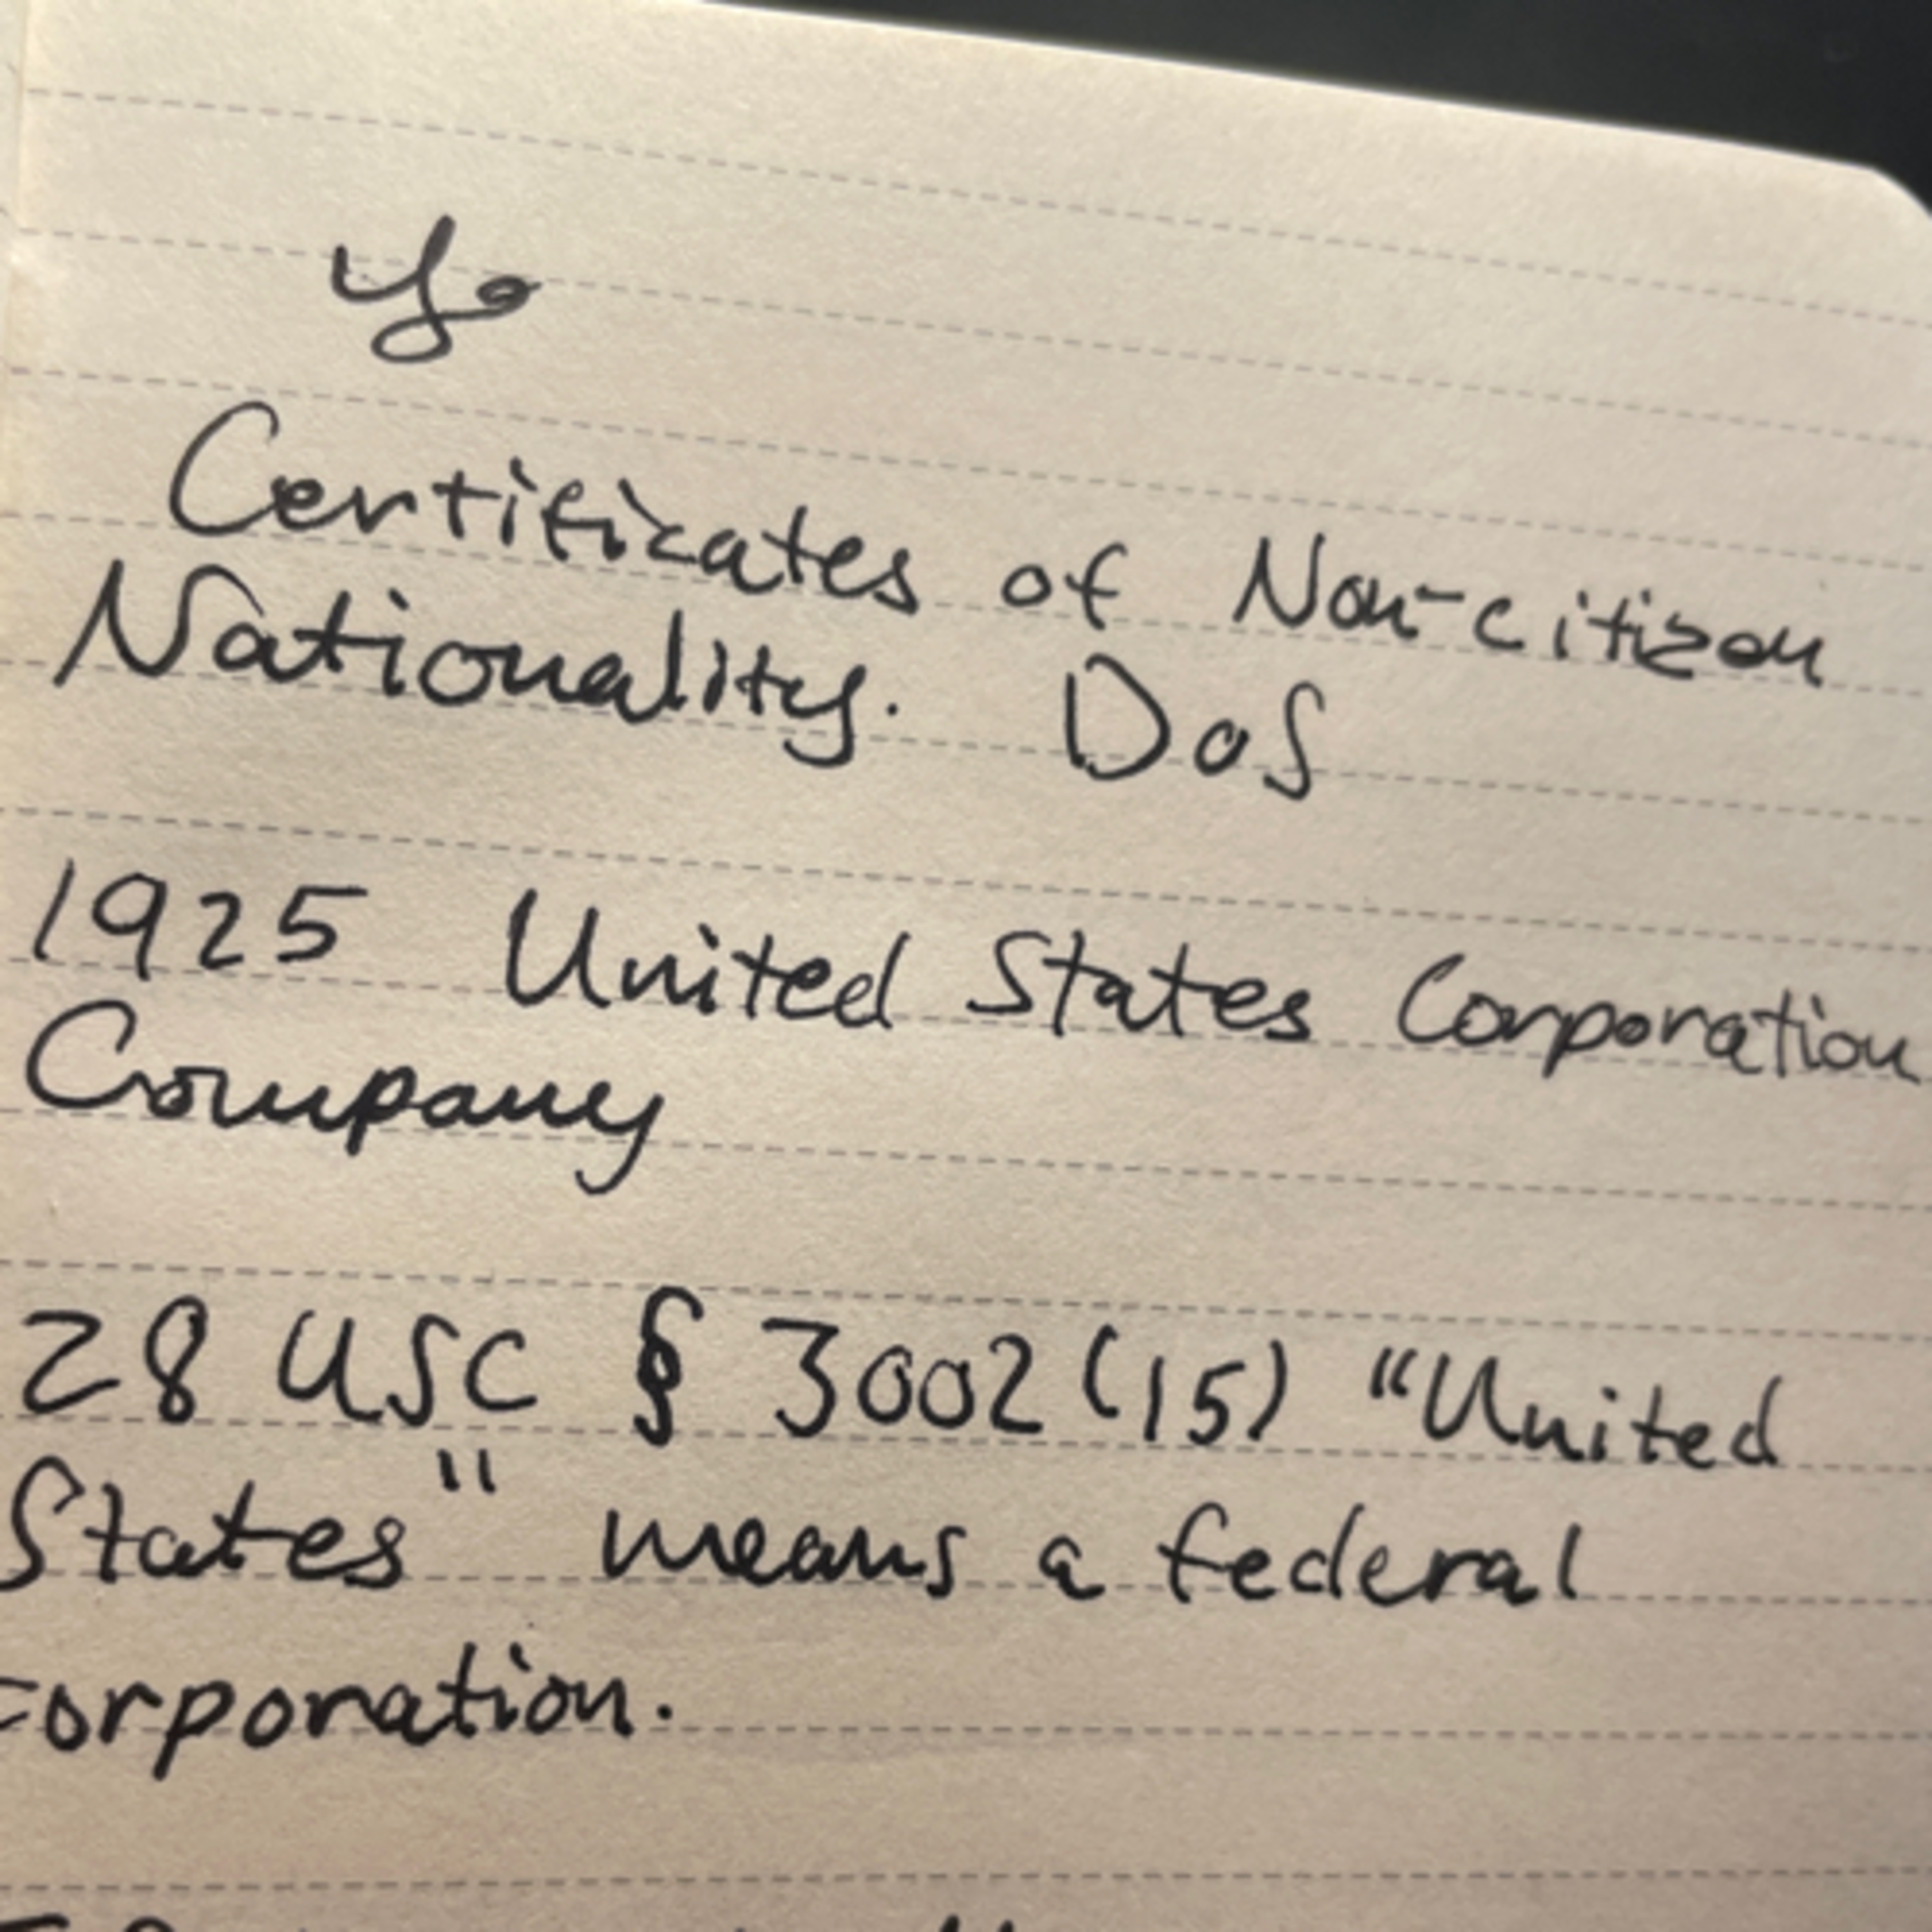 Certificates of Non-citizen
Nationality. DoS
1925 United States Corporation
Company
28 USC § 3002 (15) "United
States" means a federal
corporation.